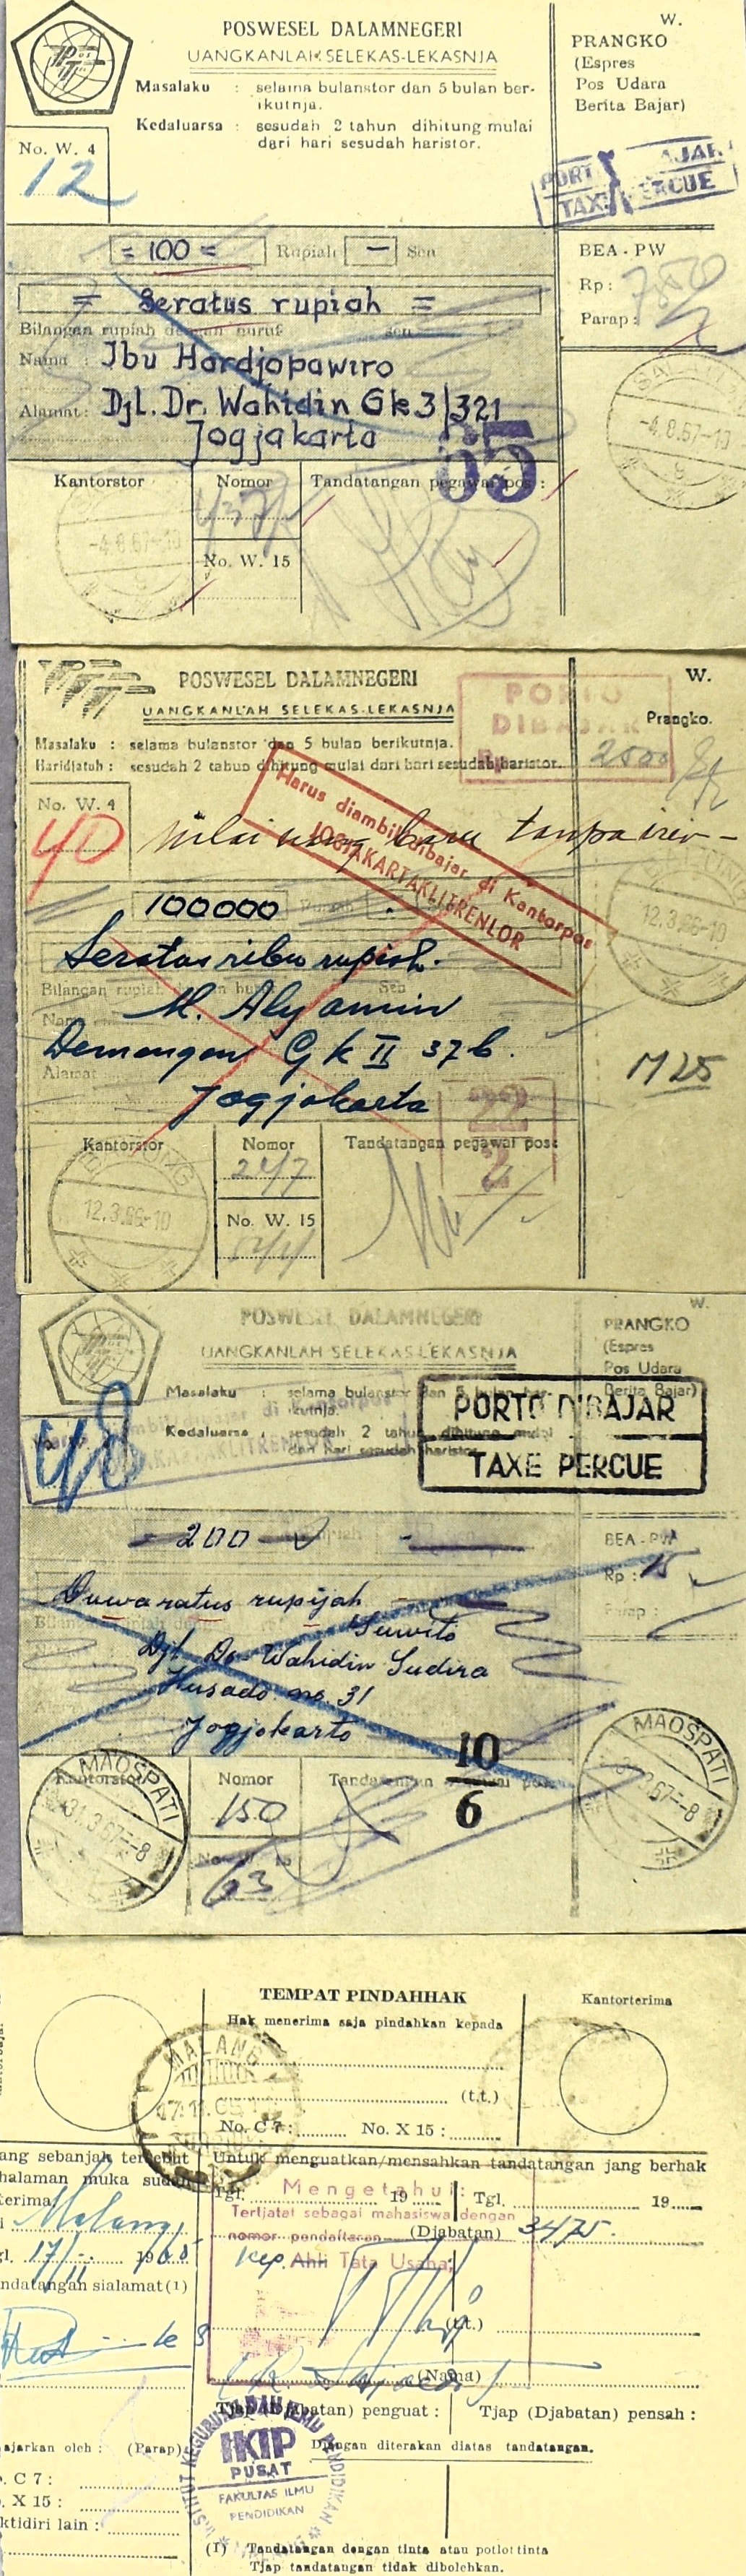 POSWESEL DALAMNEGERI
UANGKANLAH SELEKAS-LEKASNJA
Masalaku : selama bulanstor dan 5 bulan ber-
ikutnja.
Kedaluarsa : sesudah 2 tahun dihitung mulai
dari hari sesudah haristor.
W.
PRANGKO
(Espres
Pos Udara
Berita Bajar)
No. W. 4
12
PORT AJAR
TAXE PERCUE
= 100 = Rupiah — Sen
= Seratus rupiah =
Bilangan rupiah dengan huruf sen
Nama : Ibu Hardjopawiro
Alamat : Djl. Dr. Wahidin Gk 3/321
Jogjakarta
BEA - PW
Rp :
Parap :
65
-4.8.67-10
9
Kantorstor
Nomor
Tandatangan pegawai pos :
-4.8.67-10
9
No. W. 15
POSWESEL DALAMNEGERI
UANGKANLAH SELEKAS-LEKASNJA
Masalaku : selama bulanstor dan 5 bulan berikutnja.
Haridjatuh : sesudah 2 tahun dihitung mulai dari hari sesudah haristor.
W.
Prangko.
PORTO
DIBAJAR
Rp 2500
No. W. 4
40
Nilai uang baru tanpa
Harus diambil/dibajar di Kantorpos
JOGJAKARTAKLITRENLOR
100000 Rupiah
Seratus ribu rupiah.
Bilangan rupiah dengan huruf Sen
Nama M. Aly amin
Demangan Gk II 37b.
Alamat
Jogjakarta
12.3.66-10
M 25
22
2
Kantorstor
Nomor
Tandatangan pegawai pos:
12.3.66-10
24/7
No. W. 15
POSWESEL DALAMNEGERI
UANGKANLAH SELEKAS-LEKASNJA
Masalaku : selama bulanstor dan 5 bulan ber-
ikutnja.
Kedaluarsa : sesudah 2 tahun dihitung mulai
dari hari sesudah haristor.
W.
PRANGKO
(Espres
Pos Udara
Berita Bajar)
PORTO DIBAJAR
TAXE PERCUE
48
200
Duwaratus rupijah
Suwito
Djl. Dr. Wahidin Sudira
Husado no. 31
Jogjokarto
BEA - PW
Rp : 15
Parap :
10
6
MAOSPATI
31.3.67-8
Kantorstor
Nomor
150
Tandatangan pegawai pos
63
MAOSPATI
31.3.67-8
TEMPAT PINDAHHAK
Hak menerima saja pindahkan kepada
(t.t.)
No. C 7 : No. X 15 :
Kantorterima
MALANG
ang sebanjak tersebut
halaman muka sudah
terima
Malang
gl. 17/11 1965
ndatangan sialamat (1)
Untuk menguatkan/mensahkan tandatangan jang berhak
Tgl. 19 Tgl. 19
Mengetahui:
Tertjatat sebagai mahasiswa dengan
nomor pendaftaran (Djabatan) 3475.
Kep. Ahli Tata Usaha,
(t.t.)
(Nama)
Tjap (Djabatan) penguat : Tjap (Djabatan) pensah :
Djangan diterakan diatas tandatangan.
INSTITUT KEGURUAN DAN ILMU PENDIDIKAN
IKIP
PUSAT
FAKULTAS ILMU
PENDIDIKAN
ajarkan oleh : (Parap)
. C 7 :
. X 15 :
ktidiri lain :
(1) Tandatangan dengan tinta atau potlot tinta
Tjap tandatangan tidak dibolehkan.